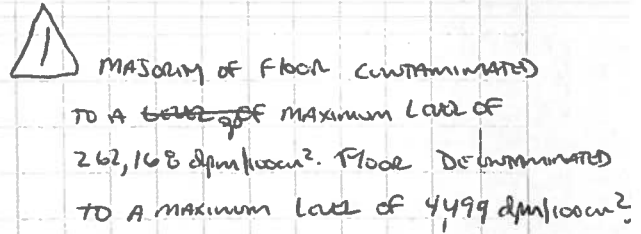 1 MAJORITY OF FLOOR CONTAMINATED
TO A LEVEL OF MAXIMUM LEVEL OF
262,168 dpm/100cm². FLOOR DECONTAMINATED
TO A MAXIMUM LEVEL OF 4,499 dpm/100cm².